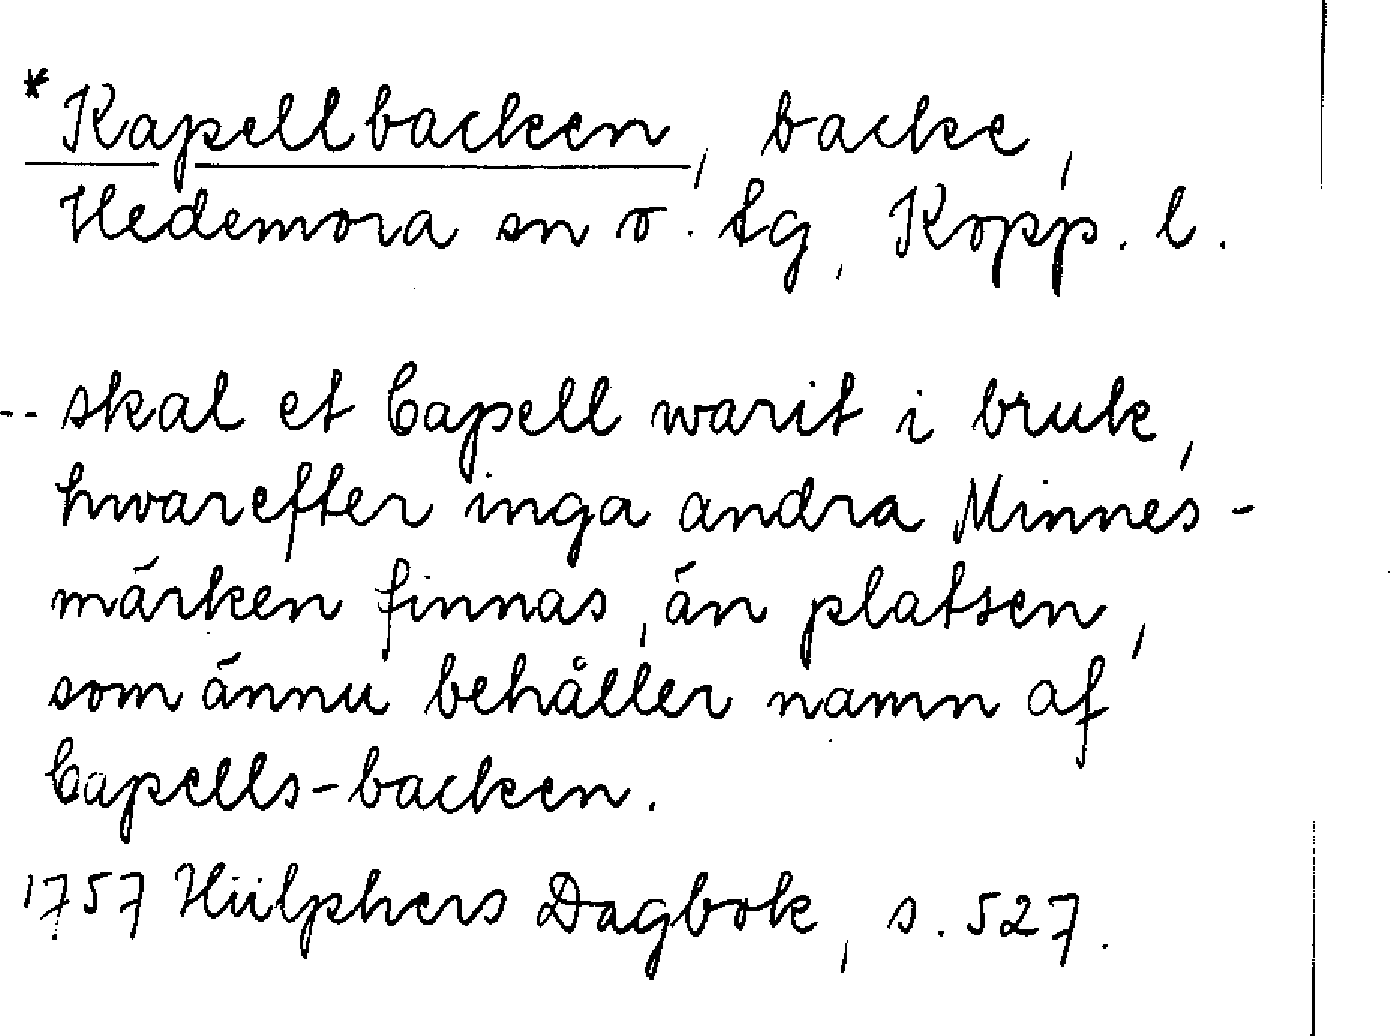 *Kapellbacken, backe,
Hedemora sn o. tg, Kopp. l.
-- skal et Capell warit i bruk,
hwarefter inga andra Minnes-
märken finnas, än platsen,
som ännu behåller namn af
Capells-backen.
1757 Hülphers Dagbok, s. 527.